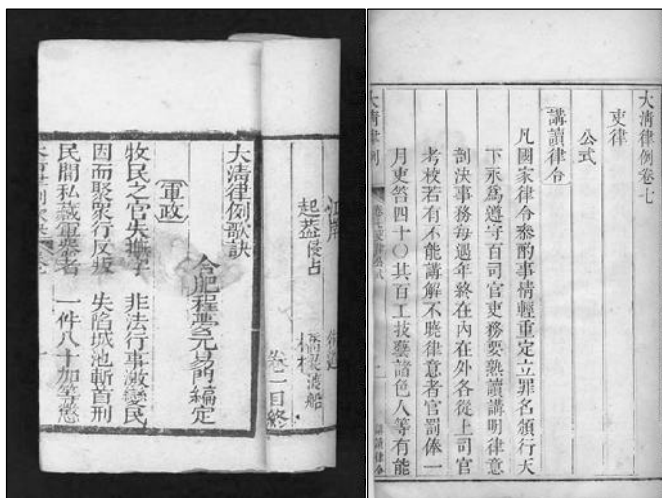 起蓋侵占
卷一目終
大清律例歌訣
合肥程夢元易門編定
軍政
牧民之官失撫字 非法行事激變民
因而聚眾行反叛 失陷城池斬首刑
民間私藏軍器者 一件八十加等懲
大清律例卷七
吏律
公式
講讀律令
凡國家律令參酌事情輕重定立罪名頒行天
下永爲遵守百司官吏務要熟讀講明律意
剖決事務每遇年終在內在外各從上司官
考校若有不能講解不曉律意者官罰俸一
月吏笞四十〇其百工技藝諸色人等有能
大清律例
講讀律令